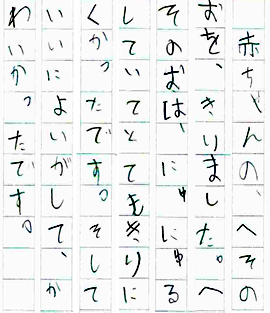 赤ちゃんの、へその
おを、きりました。へ
そのおは、にゅにゅる
していてとてもきりに
くかったです。そして
いいによいがして、か
わいいかったです。